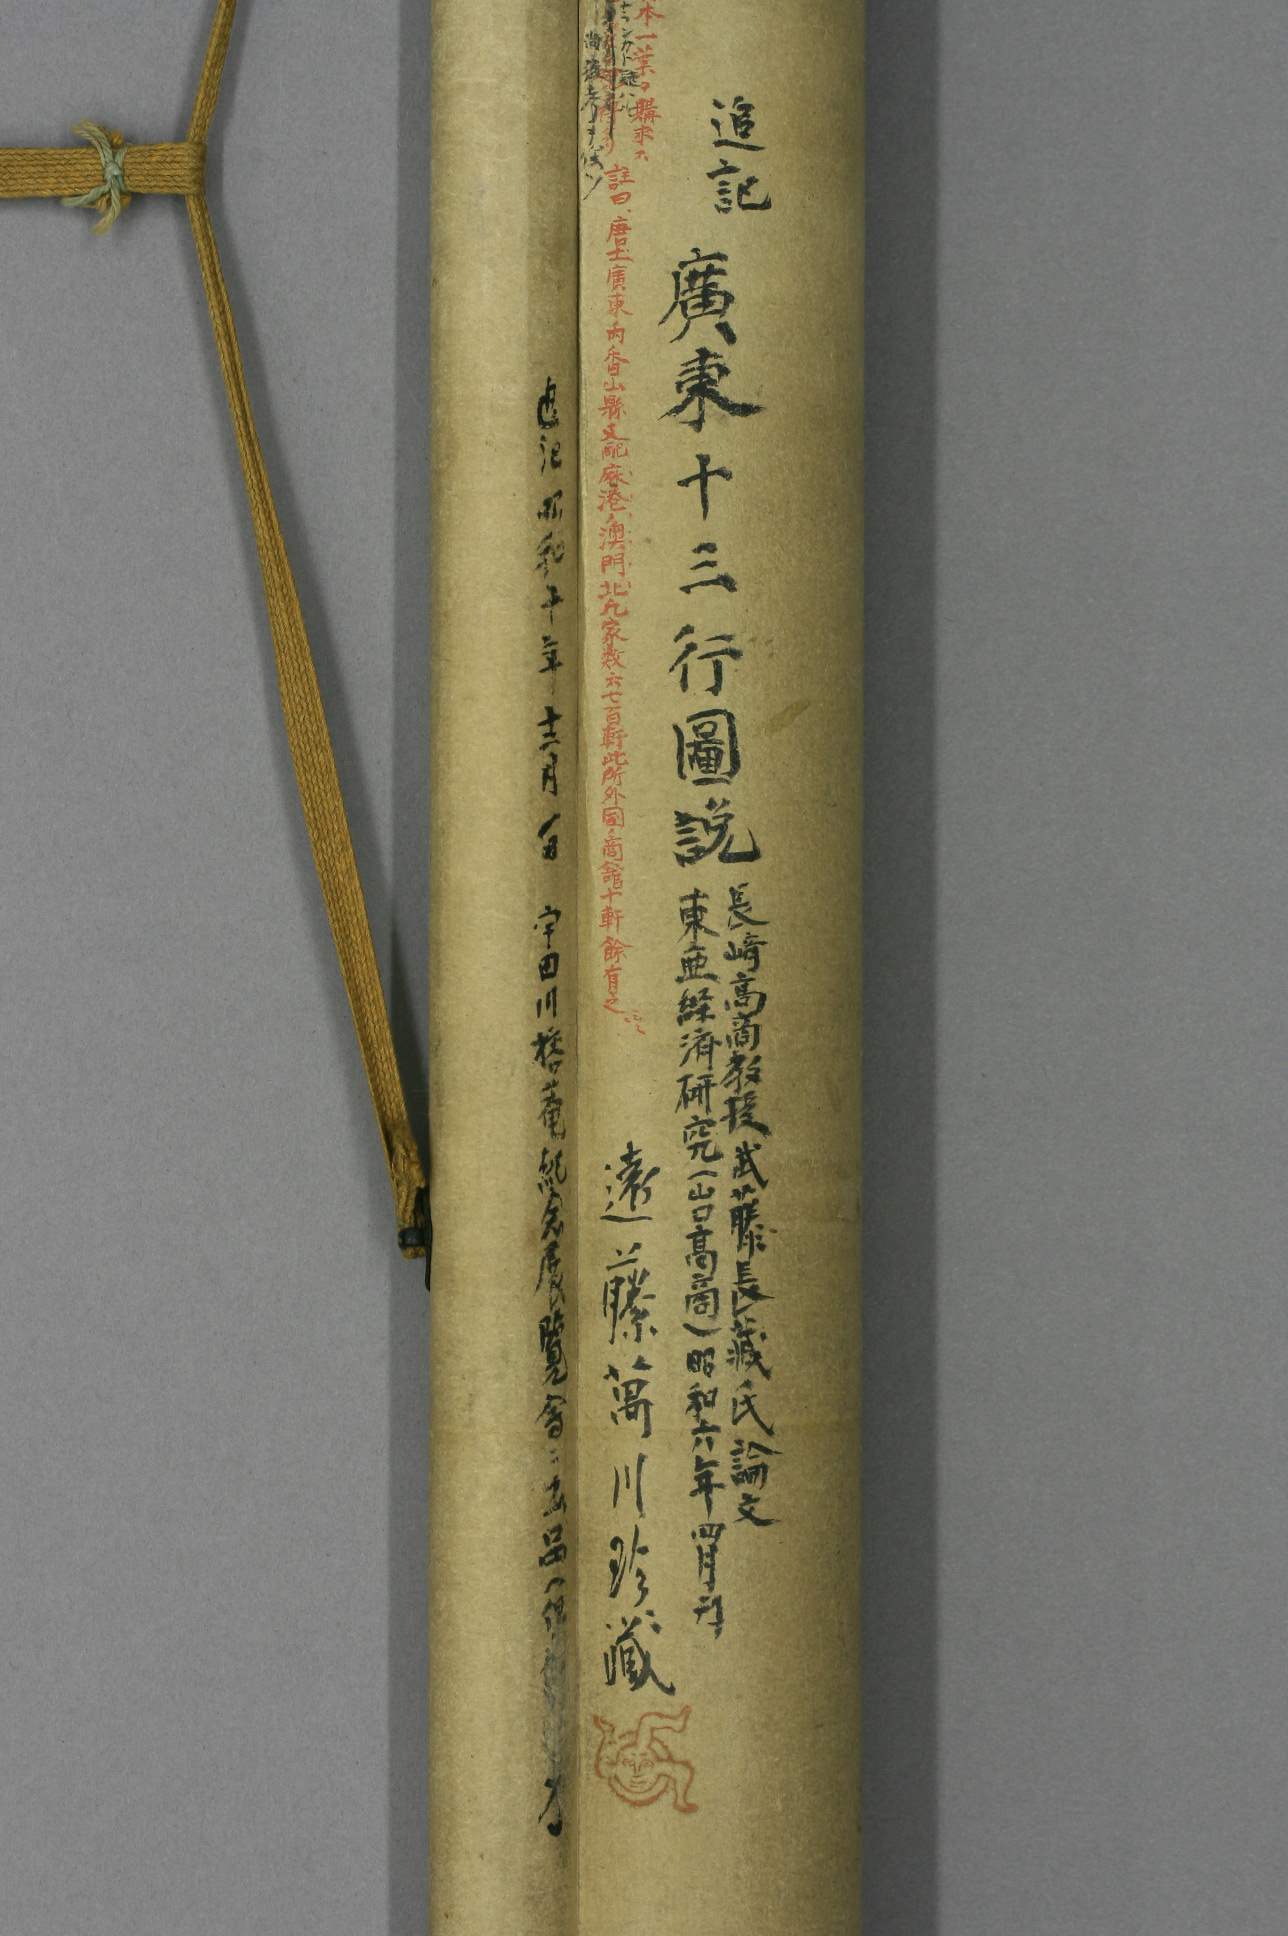 追記 廣東十三行圖說
長崎高商教授武藤長藏氏論文
東亜経済研究(山口高商)昭和六年四月刊
本一葉ヲ購求ス
註曰、唐土廣東内香山縣支配麻港ノ澳門北九家數六七百軒此所外国ノ商館十軒餘有之
遠藤萬川珍藏
追記 昭和十年十二月一日 宇田川榕菴紀念展覽會ニ出品